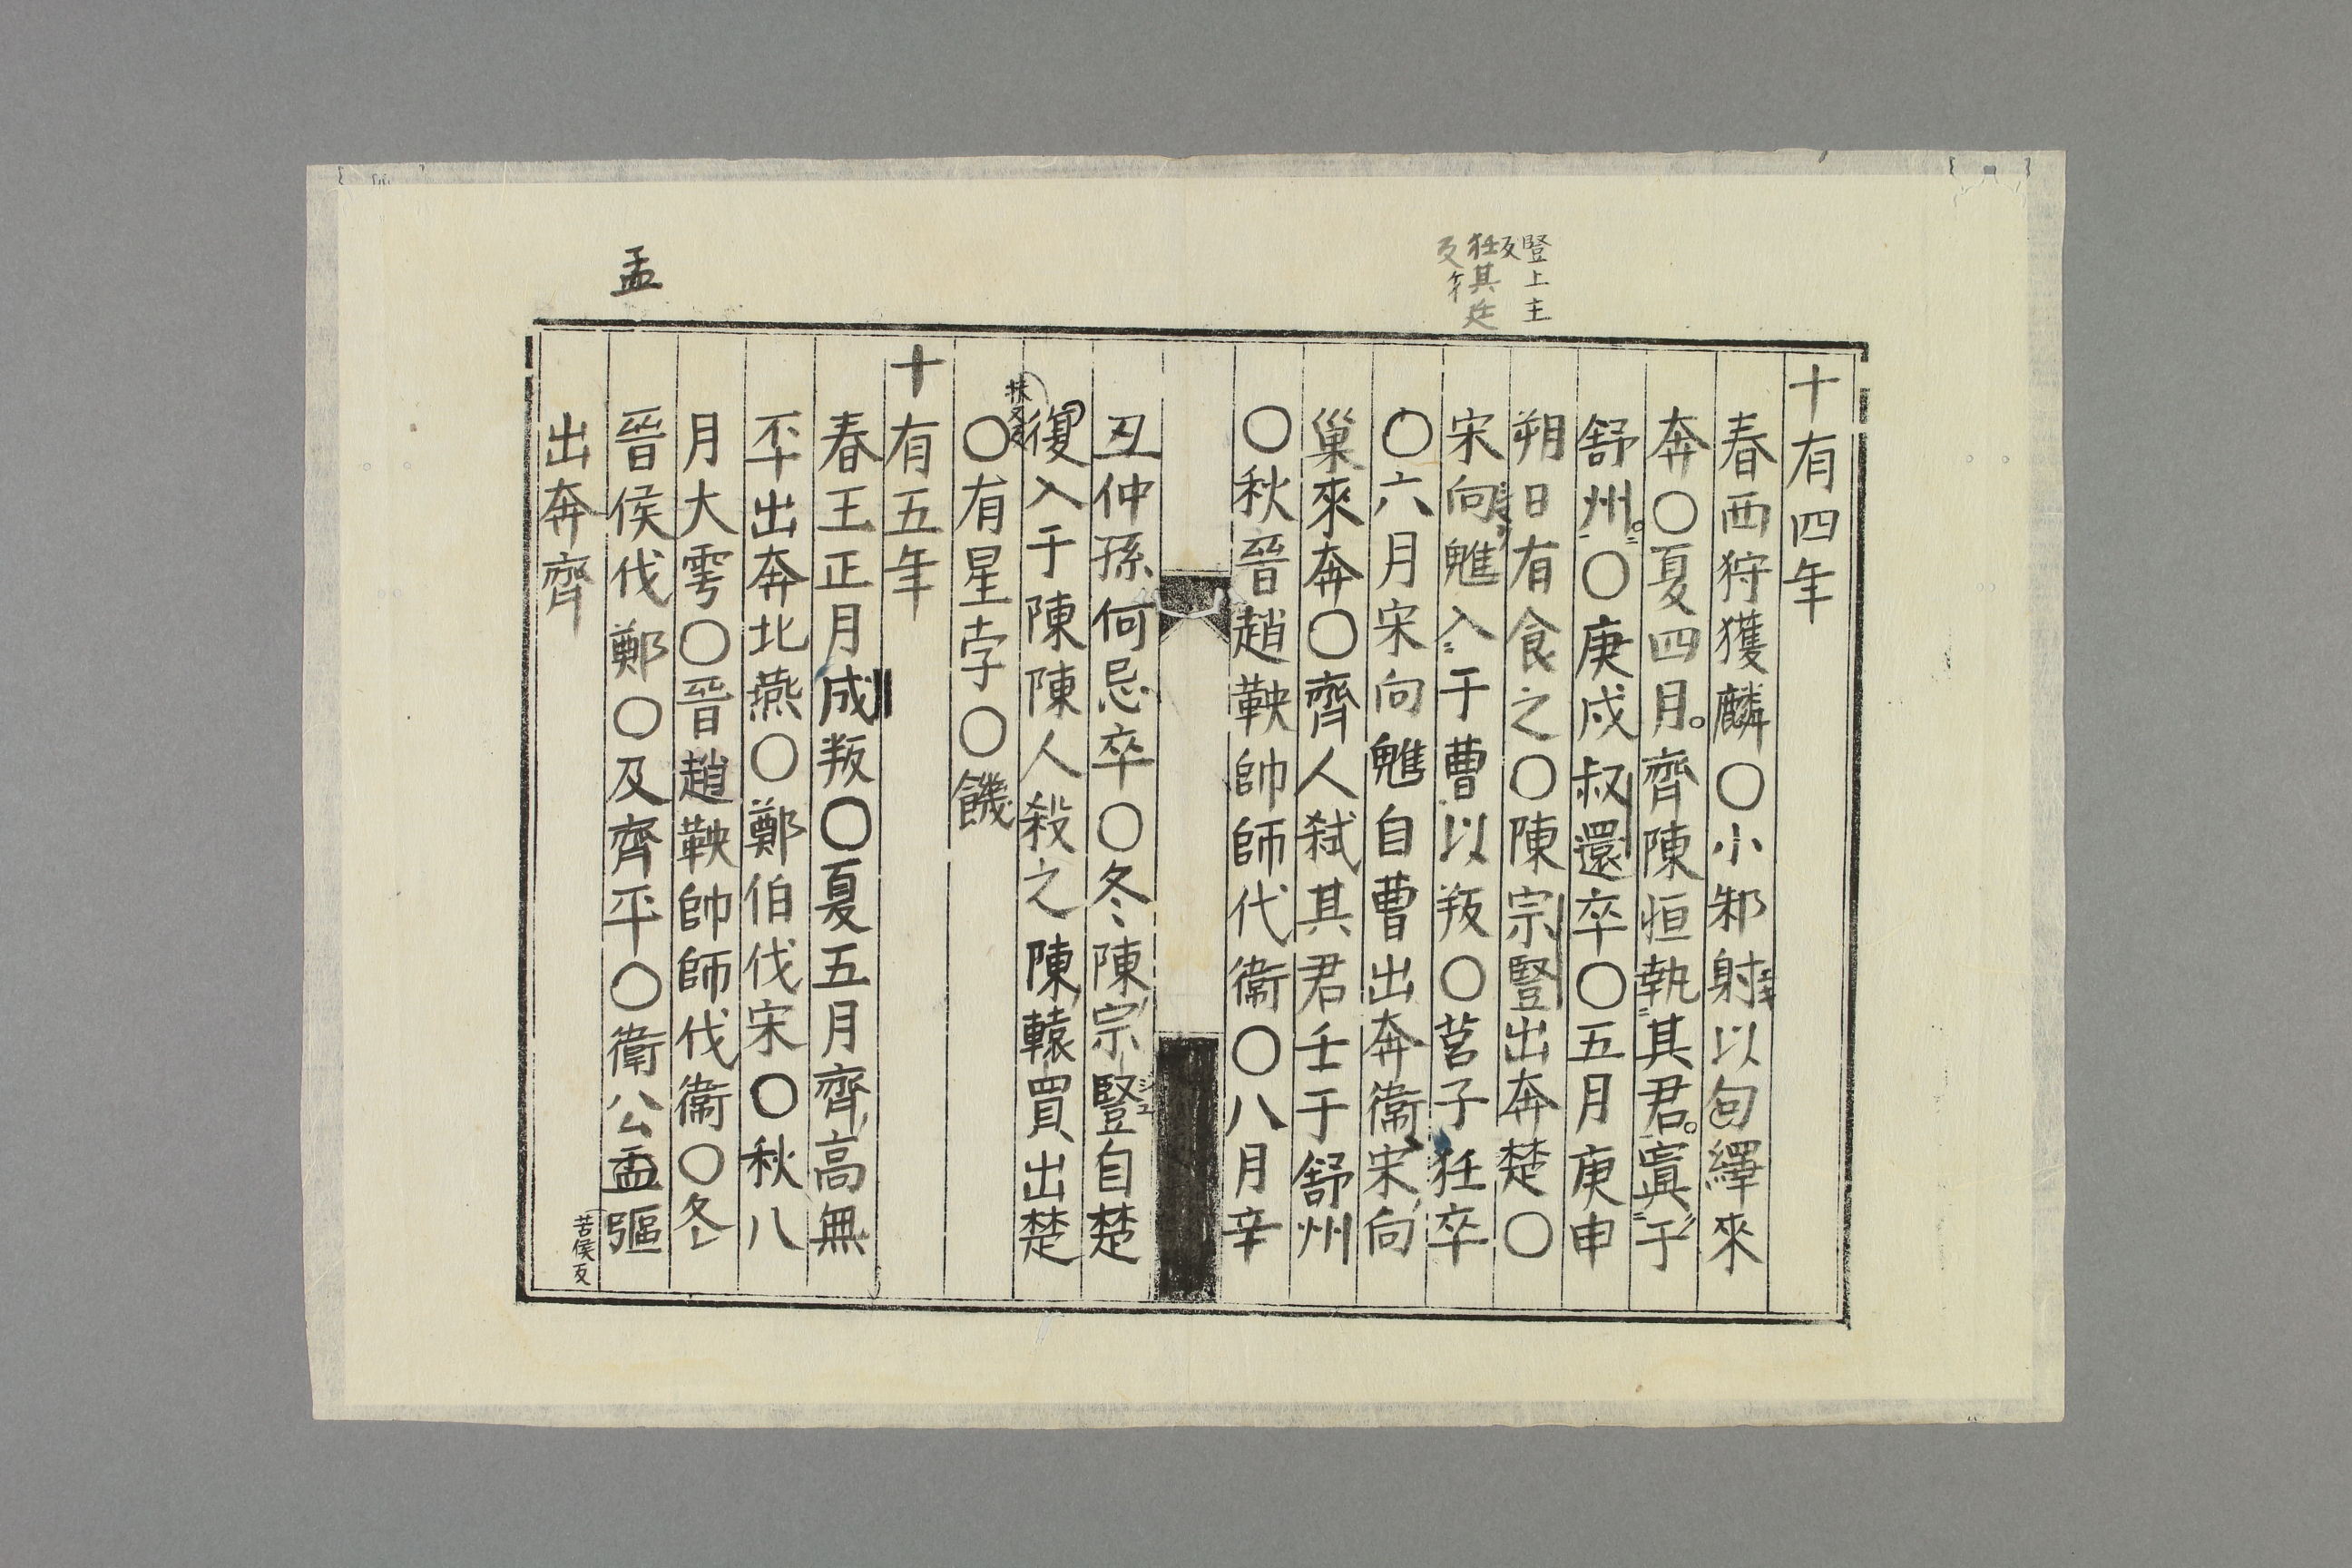 豎上主
反
狂其廷
反 年
孟
十有四年
春西狩獲麟〇小邾射以句繹來
奔〇夏四月齊陳恒執其君寘于
舒州〇庚戌叔還卒〇五月庚申
朔日有食之〇陳宗豎出奔楚〇
宋向魋入于曹以叛〇莒子狂卒
〇六月宋向魋自曹出奔衞宋向
巢來奔〇齊人弑其君壬于舒州
〇秋晉趙鞅帥師伐衞〇八月辛
丑仲孫何忌卒〇冬陳宗豎自楚
復入于陳陳人殺之陳轅買出楚
扶又反
〇有星孛〇饑
十有五年
春王正月成叛〇夏五月齊高無
㔻出奔北燕〇鄭伯伐宋〇秋八
月大雩〇晉趙鞅帥師伐衞〇冬
晉侯伐鄭〇及齊平〇衞公孟彄
苦侯反
出奔齊